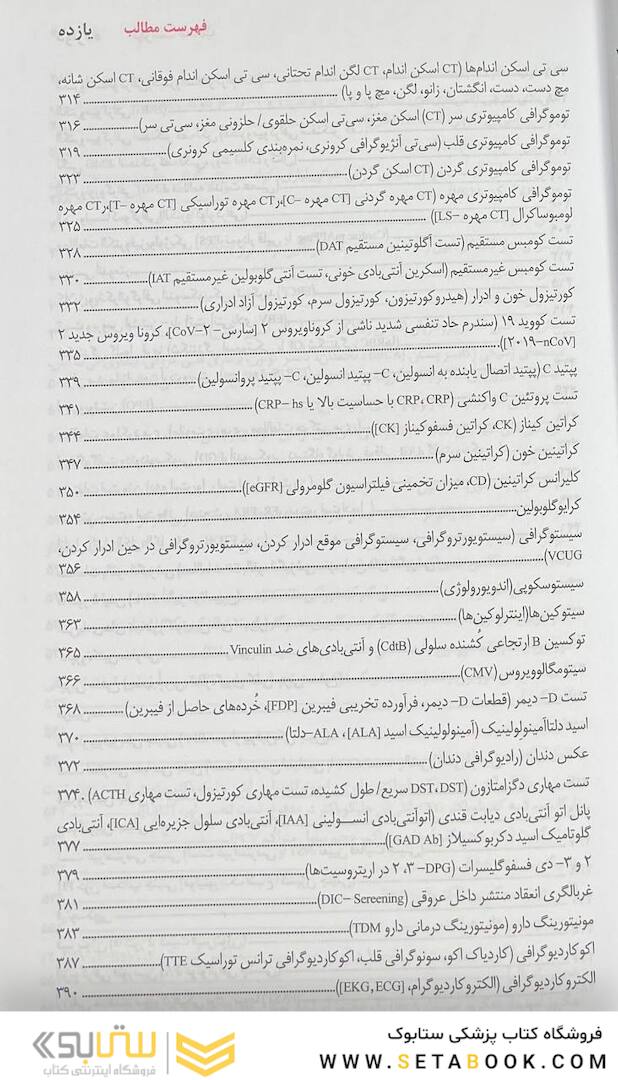 فهرست مطالب یازده
سی تی اسکن اندام‌ها (CT اسکن اندام، CT لگن اندام تحتانی، سی تی اسکن اندام فوقانی، CT اسکن شانه،
مچ دست، دست، انگشتان، زانو، لگن، مچ پا و پا) ۳۱۴
توموگرافی کامپیوتری سر (CT) اسکن مغز، سی‌تی اسکن حلقوی/ حلزونی مغز، سی‌تی سر) ۳۱۶
توموگرافی کامپیوتری قلب (سی‌تی آنژیوگرافی کرونری، نمره‌بندی کلسیمی کرونری) ۳۱۹
توموگرافی کامپیوتری گردن (CT اسکن گردن) ۳۲۳
توموگرافی کامپیوتری مهره (CT مهره گردنی [CT مهره –C]، CT مهره توراسیکی [CT مهره –T]، CT مهره
لومبوساکرال [CT مهره –LS]) ۳۲۵
تست کومبس مستقیم (تست آگلوتینین مستقیم DAT) ۳۲۸
تست کومبس غیرمستقیم (اسکرین آنتی‌بادی خونی، تست آنتی‌گلوبولین غیرمستقیم IAT) ۳۳۰
کورتیزول خون و ادرار (هیدروکورتیزون، کورتیزول سرم، کورتیزول آزاد ادراری) ۳۳۲
تست کووید ۱۹ (سندرم حاد تنفسی شدید ناشی از کروناویروس ۲ [سارس– CoV–۲]، کرونا ویروس جدید ۲
[۲۰۱۹–nCoV]) ۳۳۵
پپتید C (پپتید اتصال یابنده به انسولین، C– پپتید انسولین، C– پپتید پروانسولین) ۳۳۹
تست پروتئین C واکنشی (CRP، CRP با حساسیت بالا یا CRP– hs) ۳۴۱
کراتین کیناز (CK، کراتین فسفوکیناز [CK]) ۳۴۴
کراتینین خون (کراتینین سرم) ۳۴۷
کلیرانس کراتینین (CD، میزان تخمینی فیلتراسیون گلومرولی [eGFR]) ۳۵۰
کرایوگلوبولین ۳۵۴
سیستوگرافی (سیستویورتروگرافی، سیستوگرافی موقع ادرار کردن، سیستویورتروگرافی در حین ادرار کردن،
VCUG) ۳۵۶
سیستوسکوپی(اندویورولوژی) ۳۵۸
سیتوکین‌ها(اینترلوکین‌ها) ۳۶۳
توکسین B ارتجاعی کُشنده سلولی (CdtB) و آنتی‌بادی‌های ضد Vinculin ۳۶۵
سیتومگالوویروس (CMV) ۳۶۶
تست D– دیمر (قطعات D– دیمر، فرآورده تخریبی فیبرین [FDP]، خُرده‌های حاصل از فیبرین) ۳۶۸
اسید دلتاآمینولولینیک (آمینولولینیک اسید [ALA]، ALA–دلتا) ۳۷۰
عکس دندان (رادیوگرافی دندان) ۳۷۲
تست مهاری دگزامتازون (DST، DST سریع/ طول کشیده، تست مهاری کورتیزول، تست مهاری ACTH) ۳۷۴
پانل اتو آنتی‌بادی دیابت قندی (اتوآنتی‌بادی انسولینی [IAA]، آنتی‌بادی سلول جزیره‌ایی [ICA]، آنتی‌بادی
گلوتامیک اسید دکربوکسیلاز [GAD Ab]) ۳۷۷
۲ و ۳– دی فسفوگلیسرات (DPG– ۲،۳ در اریتروسیت‌ها) ۳۷۹
غربالگری انعقاد منتشر داخل عروقی (DIC– Sereening) ۳۸۱
مونیتورینگ دارو (مونیتورینگ درمانی دارو TDM) ۳۸۳
اکوکاردیوگرافی (کاردیاک اکو، سونوگرافی قلب، اکوکاردیوگرافی ترانس توراسیک TTE) ۳۸۷
الکتروکاردیوگرافی (الکتروکاردیوگرام، [EKG, ECG]) ۳۹۰
فروشگاه کتاب پزشکی ستابوک
WWW.SETABOOK.COM
ستابوک
فروشگاه اینترنتی کتاب